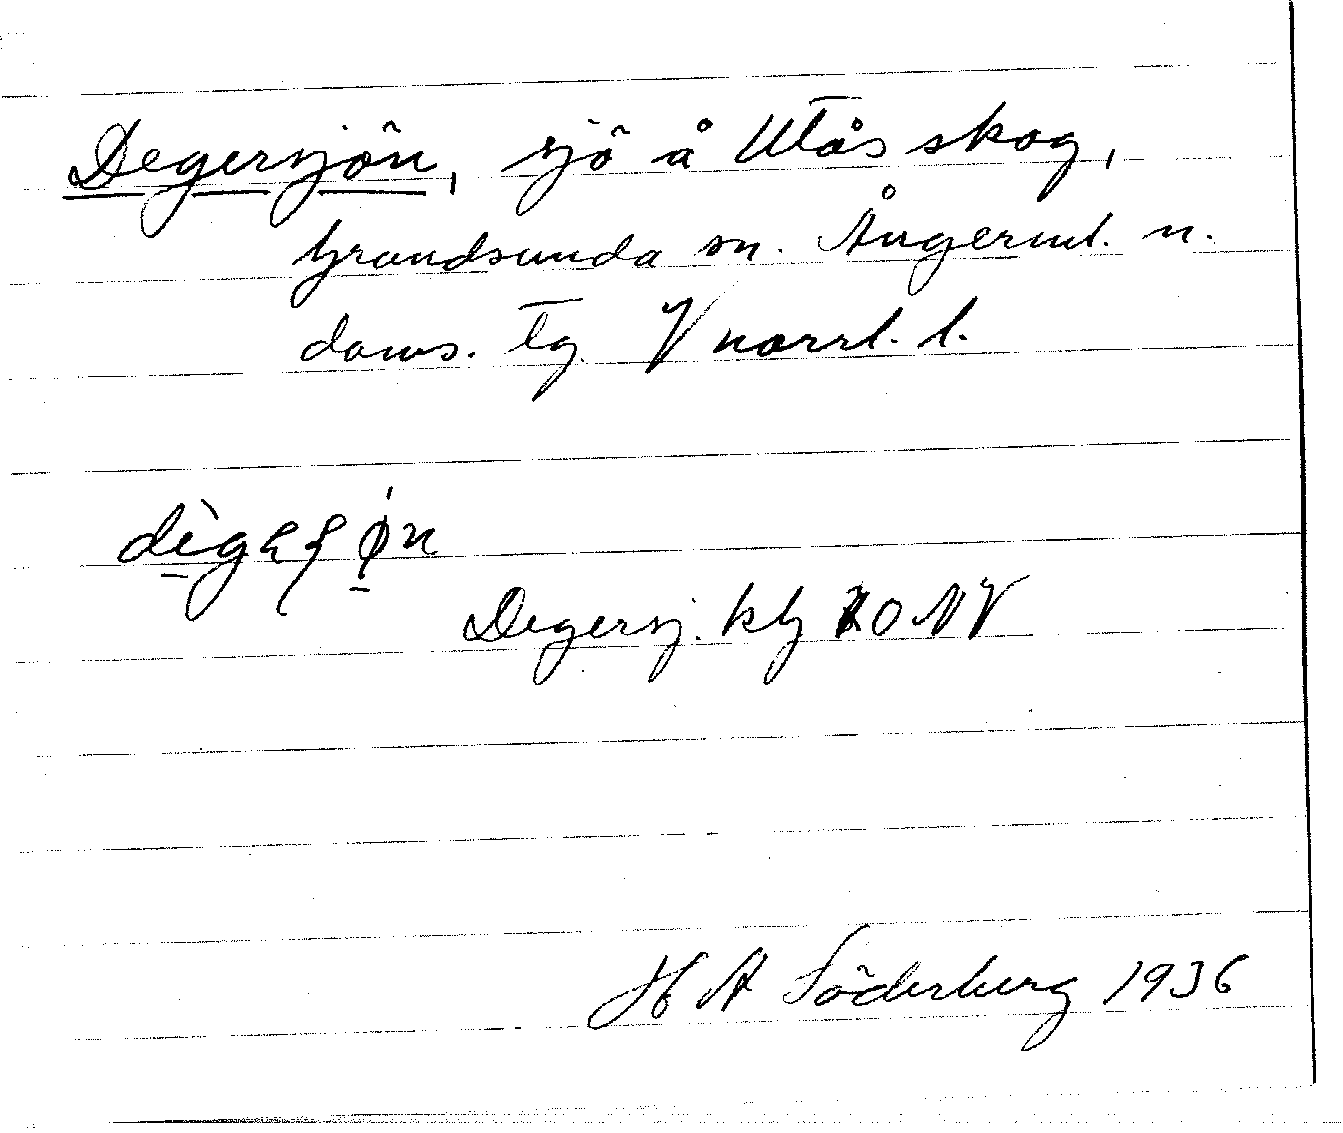 Degersjön, sjö å Utås skog,
Grundsunda sn. Ångerml. n.
doms. tg. V norrl. l.
Degersj. ktg 20 NV
H A Söderberg 1936